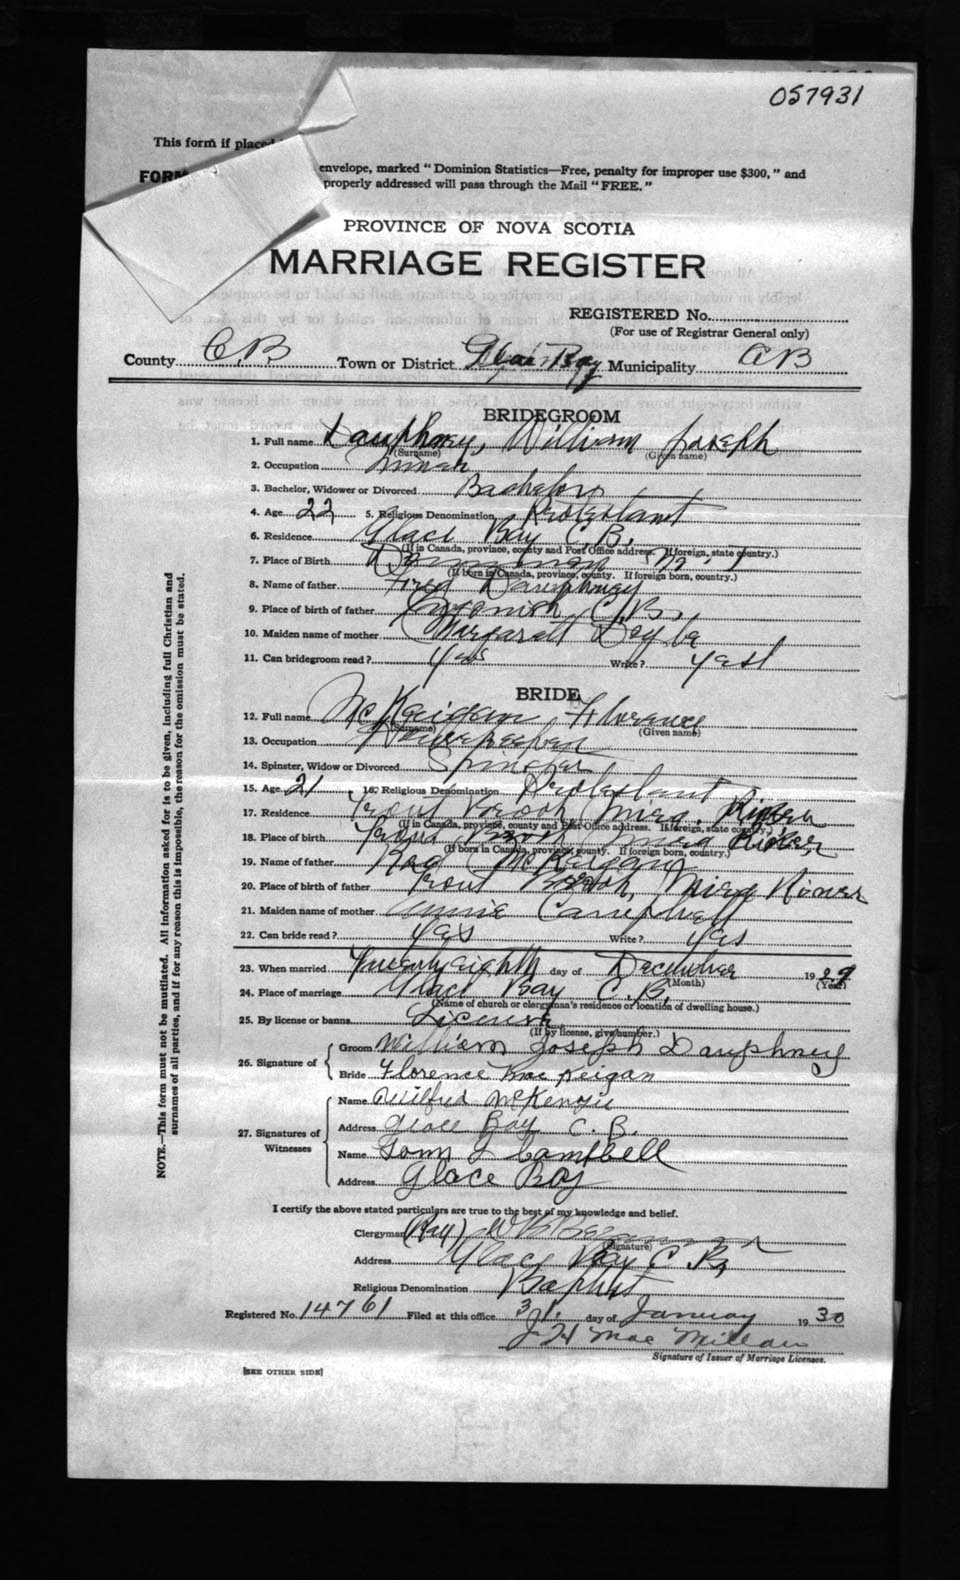 057931
This form if placed
FORM envelope, marked "Dominion Statistics—Free, penalty for improper use $300," and
properly addressed will pass through the Mail "FREE."
PROVINCE OF NOVA SCOTIA
MARRIAGE REGISTER
REGISTERED No.
(For use of Registrar General only)
County C.B. Town or District Glace Bay Municipality C B
BRIDEGROOM
1. Full name Dauphney, William Joseph
(Surname) (Given name)
2. Occupation
3. Bachelor, Widower or Divorced Bachelor
4. Age 22 5. Religious Denomination Protestant
6. Residence Glace Bay C.B.
(If in Canada, province, county and Post Office address. If foreign, state country.)
7. Place of Birth
(If born in Canada, province, county. If foreign born, country.)
8. Name of father Fred Dauphney
9. Place of birth of father C.B.
10. Maiden name of mother Margaratt
11. Can bridegroom read? yes Write? yest
BRIDE
12. Full name McKeigan, Florence
(Surname) (Given name)
13. Occupation Housekeeper
14. Spinster, Widow or Divorced Spinster
15. Age 21 16. Religious Denomination Protestant
17. Residence Trout Brook, Mira River
(If in Canada, province, county and Post Office address. If foreign, state country.)
18. Place of birth Trout Brook Mira River
(If born in Canada, province, county. If foreign born, country.)
19. Name of father McKeigan
20. Place of birth of father Trout Brook, Mira River
21. Maiden name of mother Annie Campbell
22. Can bride read? yes Write? yes
23. When married Twenty eighth day of December 19 29
(Month) (Year)
24. Place of marriage Glace Bay C.B.
(Name of church or clergyman's residence or location of dwelling house.)
25. By license or banns License
(If by license, give number.)
26. Signature of Groom William Joseph Dauphney
Bride Florence Mac Keigan
27. Signatures of Witnesses Name Wilfred McKenzie
Address Glace Bay C. B.
Name Campbell
Address Glace Bay
I certify the above stated particulars are true to the best of my knowledge and belief.
Clergyman (Rev)
(Signature)
Address Glace Bay C.B.
Religious Denomination Baptist
Registered No. 14761 Filed at this office 31. day of January 19 30
J H Mac Millan
Signature of Issuer of Marriage Licenses.
[SEE OTHER SIDE]
NOTE.—This form must not be mutilated. All information asked for is to be given, including full Christian and
surnames of all parties, and if for any reason this is impossible, the reason for the omission must be stated.